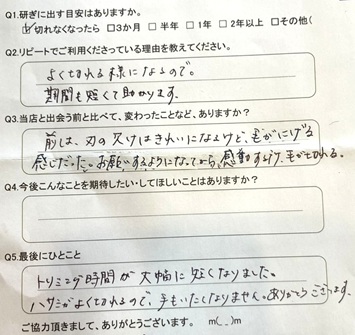 Q1.研ぎに出す目安はありますか。
☑切れなくなったら □3か月 □半年 □1年 □2年以上 □その他(
Q2.リピートでご利用くださっている理由を教えてください。
よく切れる様になるので。
期間も短くて助かります。
Q3.当店と出会う前と比べて、変わったことなど、ありますか?
前は、刃の欠けはきれいになるけど、毛がにげる
感じだった。お願いするようになってから、感動するくらい、毛が切れる。
Q4.今後こんなことを期待したい・してほしいことはありますか?
Q5.最後にひとこと
トリミング時間が大幅に短くなりました。
ハサミがよくきれるので、手もいたくなりません。ありがとうございます。
ご協力頂きまして、ありがとうございます。 m(_ _)m